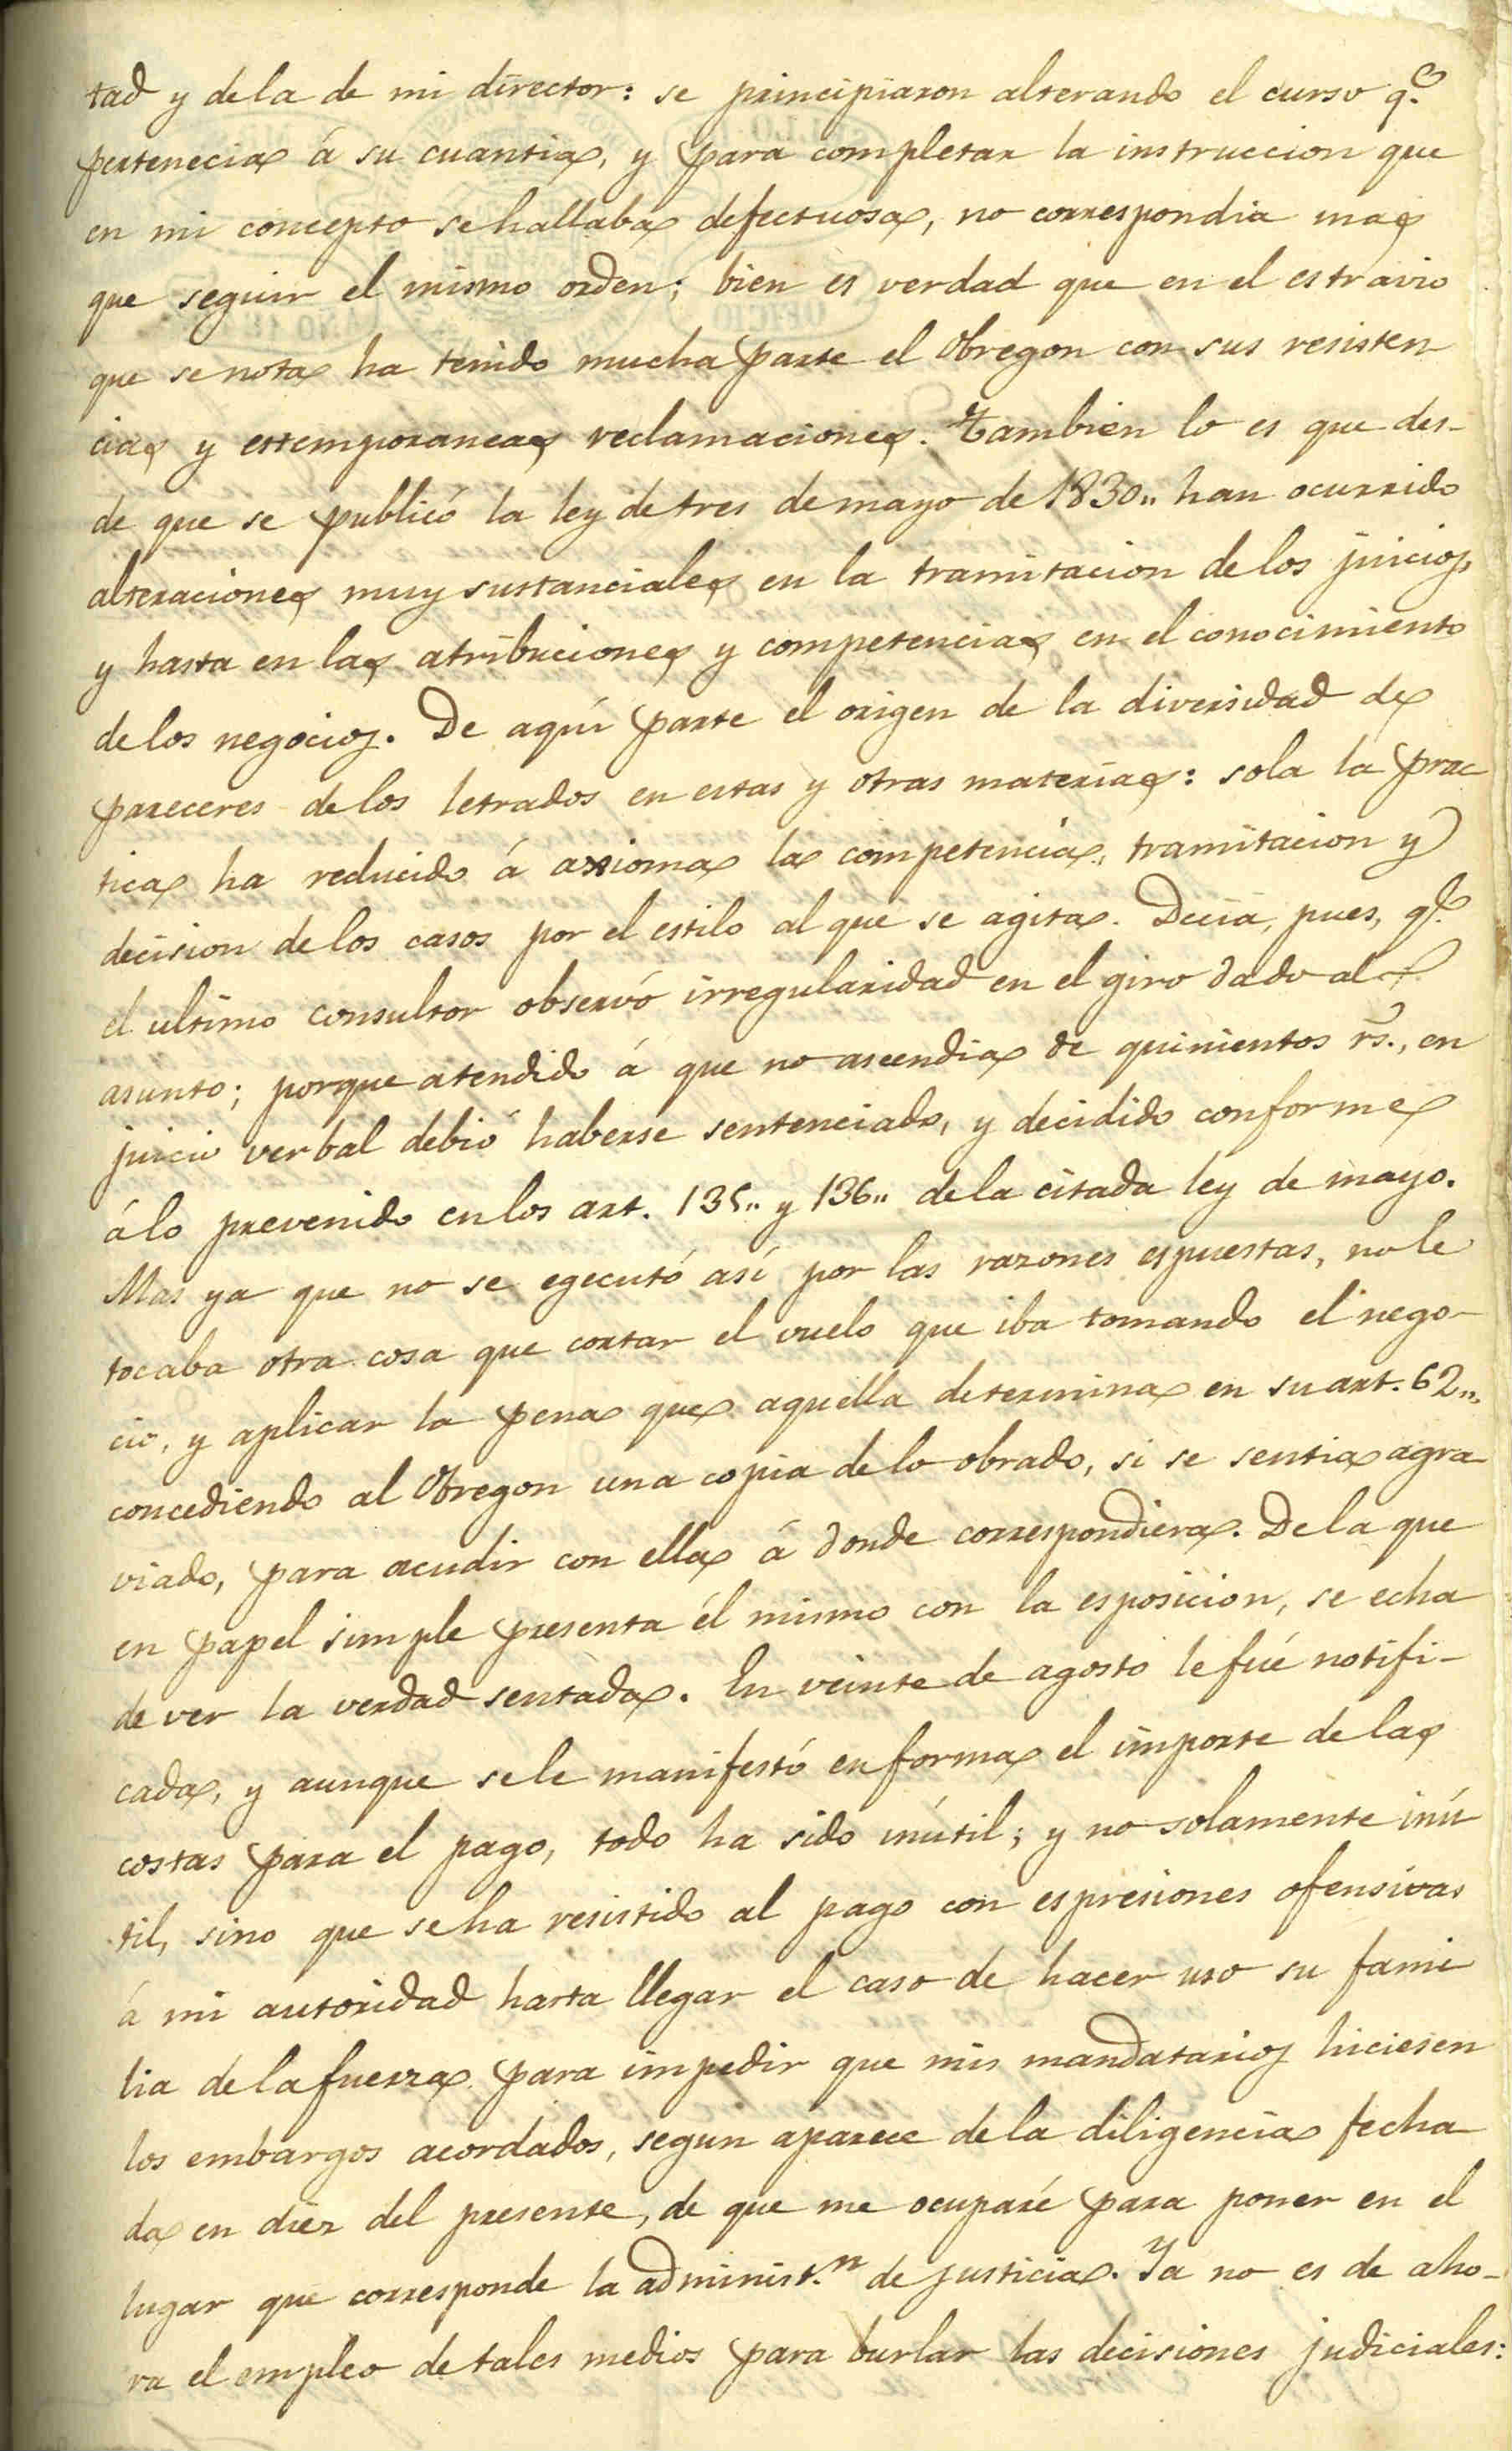 tad y de la de mi director: se principiaron alterando el curso q.e
pertenecia á su cuantia, y para completar la instruccion que
en mi concepto se hallaba defectuosa, no correspondia mas
que seguir el mismo orden; bien es verdad que en el estravio
que se nota ha tenido mucha parte el Obregon con sus resisten
cias y estemporaneas reclamaciones. Tambien lo es que des-
de que se publicó la ley de tres de mayo de 1830,, han ocurrido
alteraciones muy sustanciales en la tramitacion de los juicios,
y hasta en las atribuciones y competencias en el conocimiento
de los negocios. De aquí parte el origen de la diversidad de
pareceres de los letrados en estas y otras materias: sola la prac
tica ha reducido á axioma la competencia, tramitacion y
decision de los casos por el estilo al que se agita. Decia, pues, q.e
el ultimo consultor observó irregularidad en el giro dado al
asunto; porque atendido á que no ascendia de quinientos rs., en
juicio verbal debió haberse sentenciado, y decidido conforme
á lo prevenido en los art. 135,, y 136,, de la citada ley de mayo.
Mas ya que no se egecutó así por las razones espuestas, no le
tocaba otra cosa que cortar el vuelo que iba tomando el nego-
cio, y aplicar la pena que aquella determina en su art. 62,,
concediendo al Obregon una copia de lo obrado, si se sentia agra-
viado, para acudir con ella á donde correspondiera. De la que
en papel simple presenta él mismo con la esposicion, se echa
de ver la verdad sentada. En veinte de agosto le fué notifi-
cada, y aunque se le manifestó en forma el importe de las
costas para el pago, todo ha sido inútil; y no solamente inú
til, sino que se ha resistido al pago con espresiones ofensivas
á mi autoridad hasta llegar el caso de hacer uso su fami
lia de la fuerza para impedir que mis mandatarios hiciesen
los embargos acordados, segun aparece de la diligencia fecha
da en diez del presente, de que me ocuparé para poner en el
lugar que corresponde la administ.n de justicia. Ya no es de aho-
ra el empleo de tales medios para burlar las decisiones judiciales: